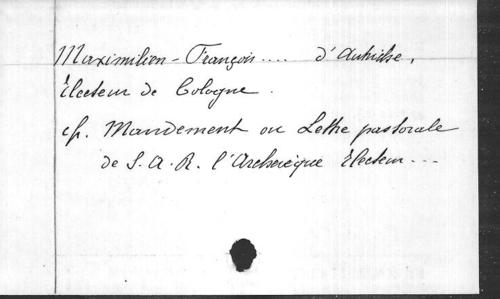 Maximilien-François .... d'Autriche,
Électeur de Cologne.
cf. Mandement ou Lettre pastorale
de S. A. R. l'Archevêque Électeur ...